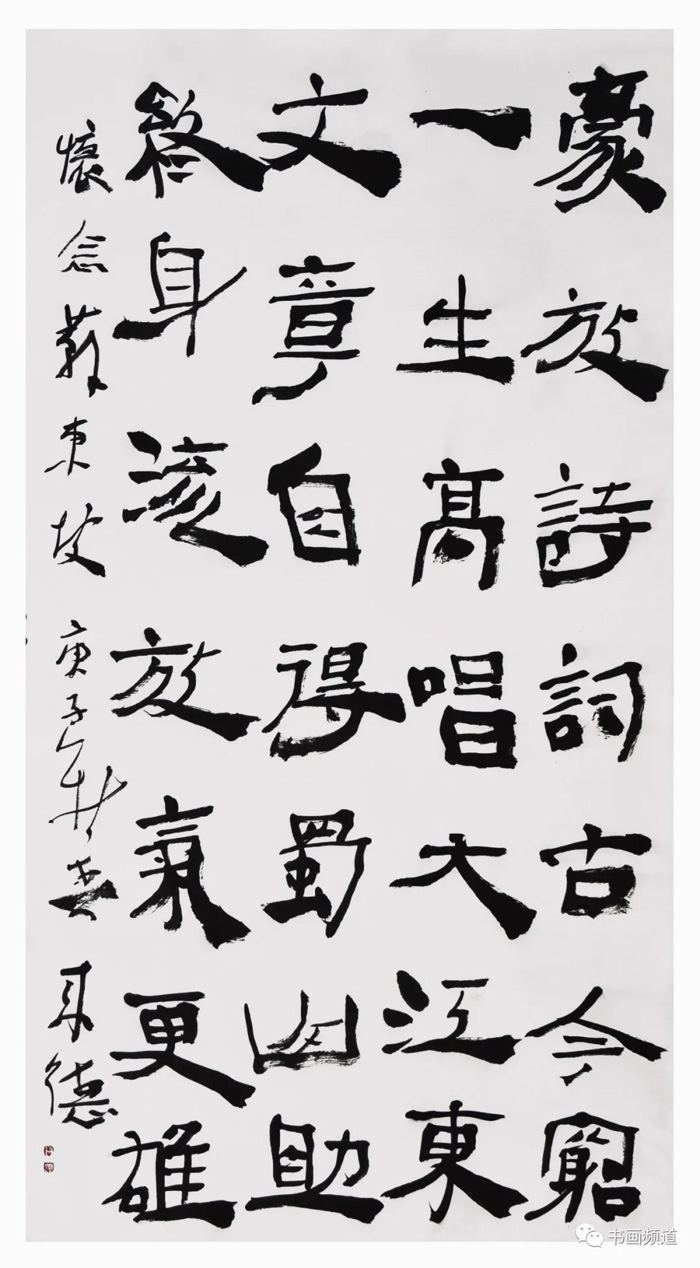 豪放詩詞古今窮
一生高唱大江東
文章自得蜀山助
終身流放氣更雄
懷念蘇東坡 庚子年 德
书画频道